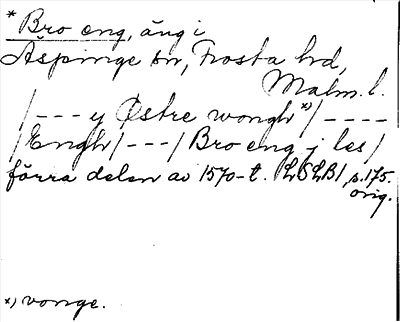 * Bro eng, äng i
Äspinge sn, Frosta hd,
Malm. l.
/--- y Østre wongh x)/----
/Engh/---/ Bro eng j les/
förra delen av 1570-t. LSLB1 s. 175.
orig.
x) vonge.